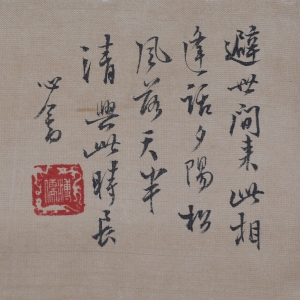 避世閒来此相
逢話夕陽松
風落天半
清興此時長
心畬
溥儒